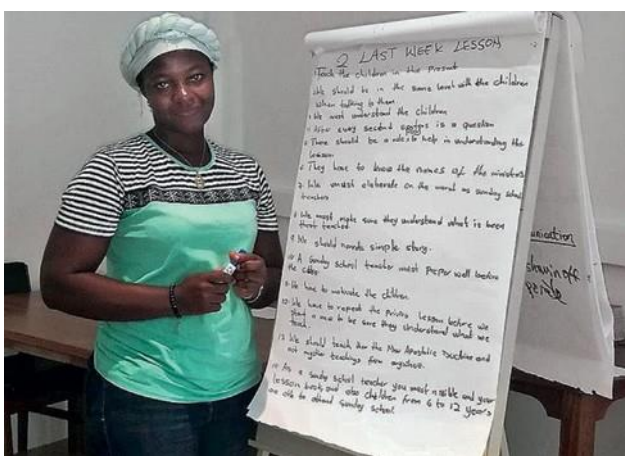 2 LAST WEEK LESSON
1 Teach the children in the Present
2 We should be in the same level with the children
when talking to them
3 We must understand the children
4 After every second is a question
5 There should be a role to help in understanding the
lesson
6 They have to know the names of the ministers
7 We must elaborate on the word as sunday school
teachers
8 We must make sure they understand what is been
taught
9 We should simple story.
10 A sunday school teacher must well before
the class
11 We have to motivate the children
12 We have to repeat the lesson before we
start a new to be sure they understand what we
13 We should teach the New Apostolic Doctrine and
not teachings from anywhere.
14 As a sunday school teacher you must bible and your
lesson books and also children from 6 to 12 years
are able to attend sunday school